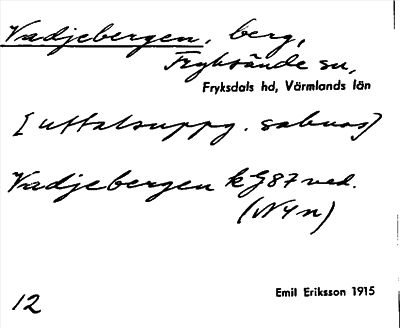 Vadjebergen, berg,
Fryksände sn,
Fryksdals hd, Värmlands län
[uttalsuppg. saknas]
Vadjebergen k G87 ved.
(N4n)
12
Emil Eriksson 1915